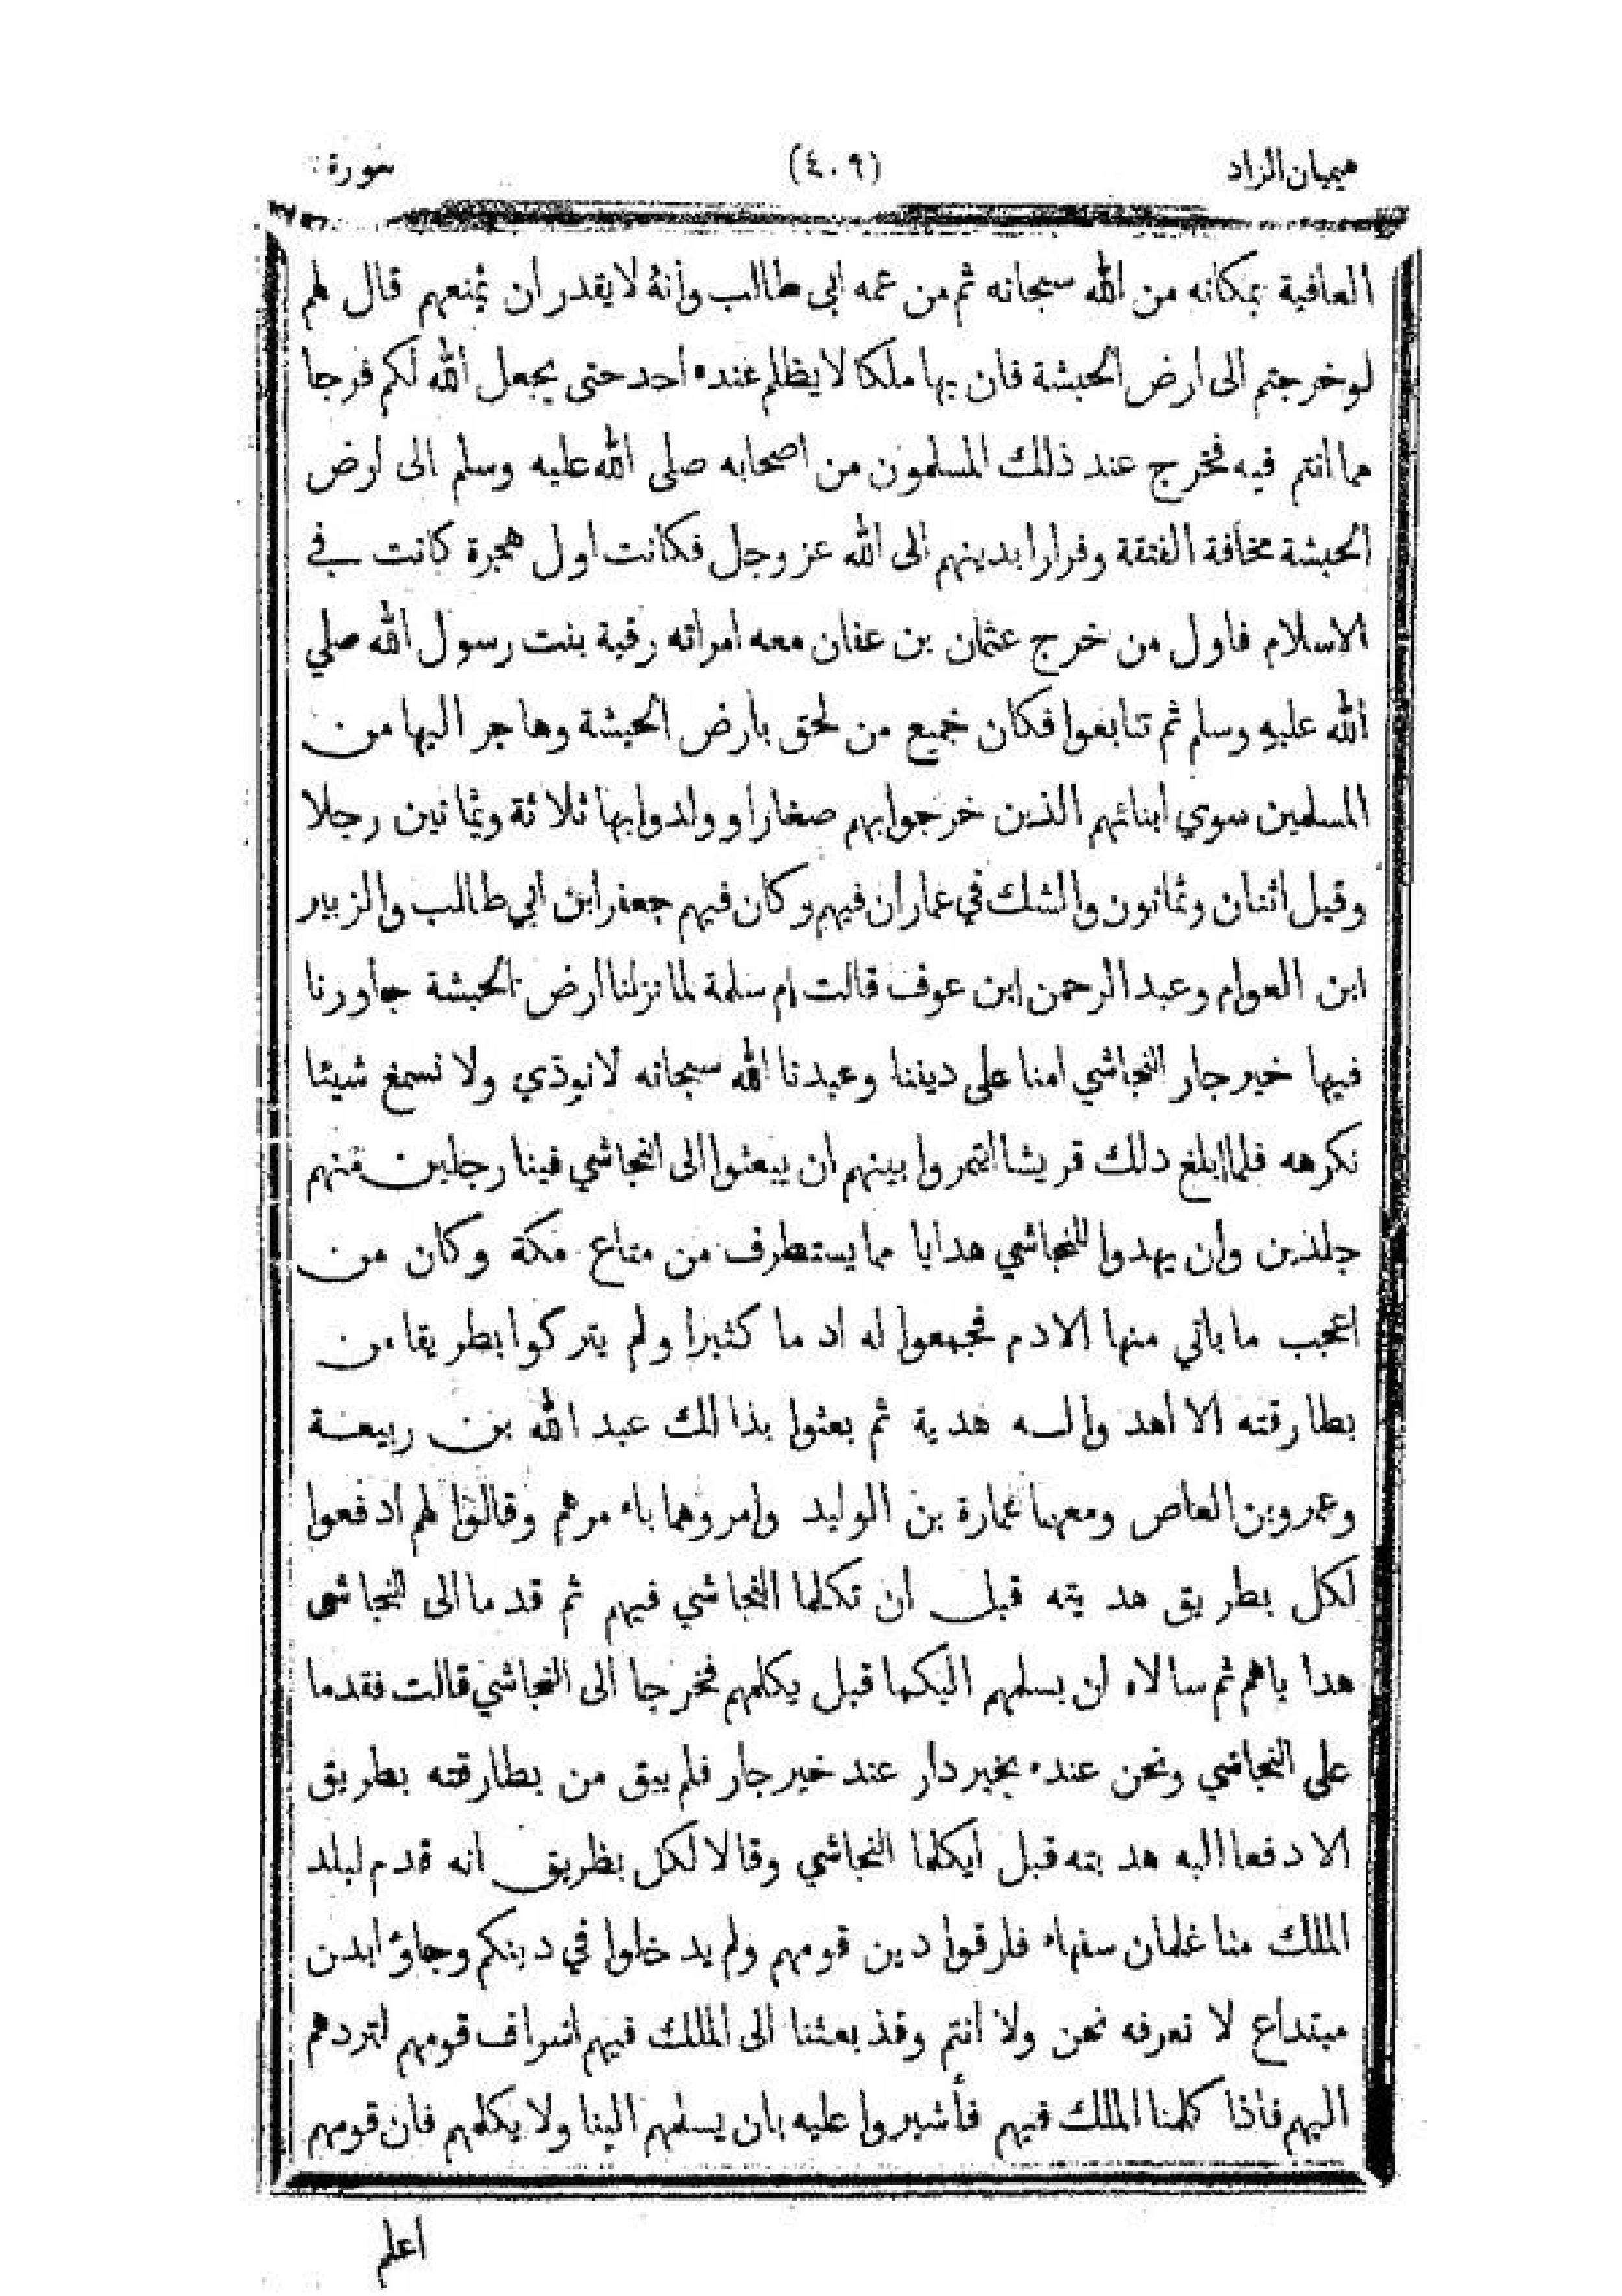 هيميان الزاد (٤٠٩) سورة
العافية بمكانه من الله سبحانه ثم من عمه ابي طالب وأنه لا يقدر ان يمنعهم قال لهم
لو خرجتم الى ارض الحبشة فان بها ملكا لا يظلم عنده احد حتى يجعل الله لكم فرجا
مما انتم فيه فخرج عند ذلك المسلمون من اصحابه صلى الله عليه وسلم الى ارض
الحبشة مخافة الفتقة وفرارا بدينهم الى الله عز وجل فكانت اول هجرة كانت في
الاسلام فاول من خرج عثمان بن عفان معه امراته رقية بنت رسول الله صلي
الله عليه وسلم ثم تتابعوا فكان جميع من لحق بأرض الحبشة وهاجر اليها من
المسلمين سوي ابنائهم الذين خرجوا بهم صغارا و ولدوا بها ثلاثة وثمانين رجلا
وقيل اثنان وثمانون والشك في عمار ان فيهم وكان فيهم جعفر ابن ابي طالب والزبير
ابن العوام وعبد الرحمن ابن عوف قالت ام سلمة لما نزلنا ارض الحبشة جاورنا
فيها خير جار النجاشي امنا على ديننا وعبدنا الله سبحانه لا نوذي ولا نسمع شيئا
نكرهه فلما بلغ ذلك قريشا ائتمروا بينهم ان يبعثوا الى النجاشي فينا رجلين منهم
جلدين وان يهدوا للنجاشي هدايا مما يستطرف من متاع مكة وكان من
اعجب ما ياتي منها الادم فجمعوا له اد ما كثيرا ولم يتركوا بطريقا من
بطارقته الا اهد واله هدية ثم بعثوا بذالك عبد الله بن ربيعة
وعمرو بن العاص ومعهما عمارة بن الوليد وامروهما باء مرهم وقالوا لهم ادفعوا
لكل بطريق هد يته قبل ان تكلما النجاشي فيهم ثم قدما الى النجاشى
هدا ياهم ثم سالاه ان يسلمهم اليكما قبل يكلمهم فخرجا الى النجاشي قالت فقدما
على النجاشي ونحن عنده بخير دار عند خير جار فلم يبق من بطارقته بطريق
الا دفعا اليه هد يته قبل ايكلما النجاشي وقالا لكل بطريق انه قدم لبلد
الملك منا غلمان سفهاء فارقوا دين قومهم ولم يد خلوا في دينكم وجاؤ ابدن
مبتداع لا نعرفه نحن ولا انتم وقد بعثنا الى الملك فيهم اشراف قومهم لتردهم
اليهم فاذا كلمنا الملك فيهم فأشيروا عليه بان يسلمهم الينا ولا يكلمهم فان قومهم
اعلم